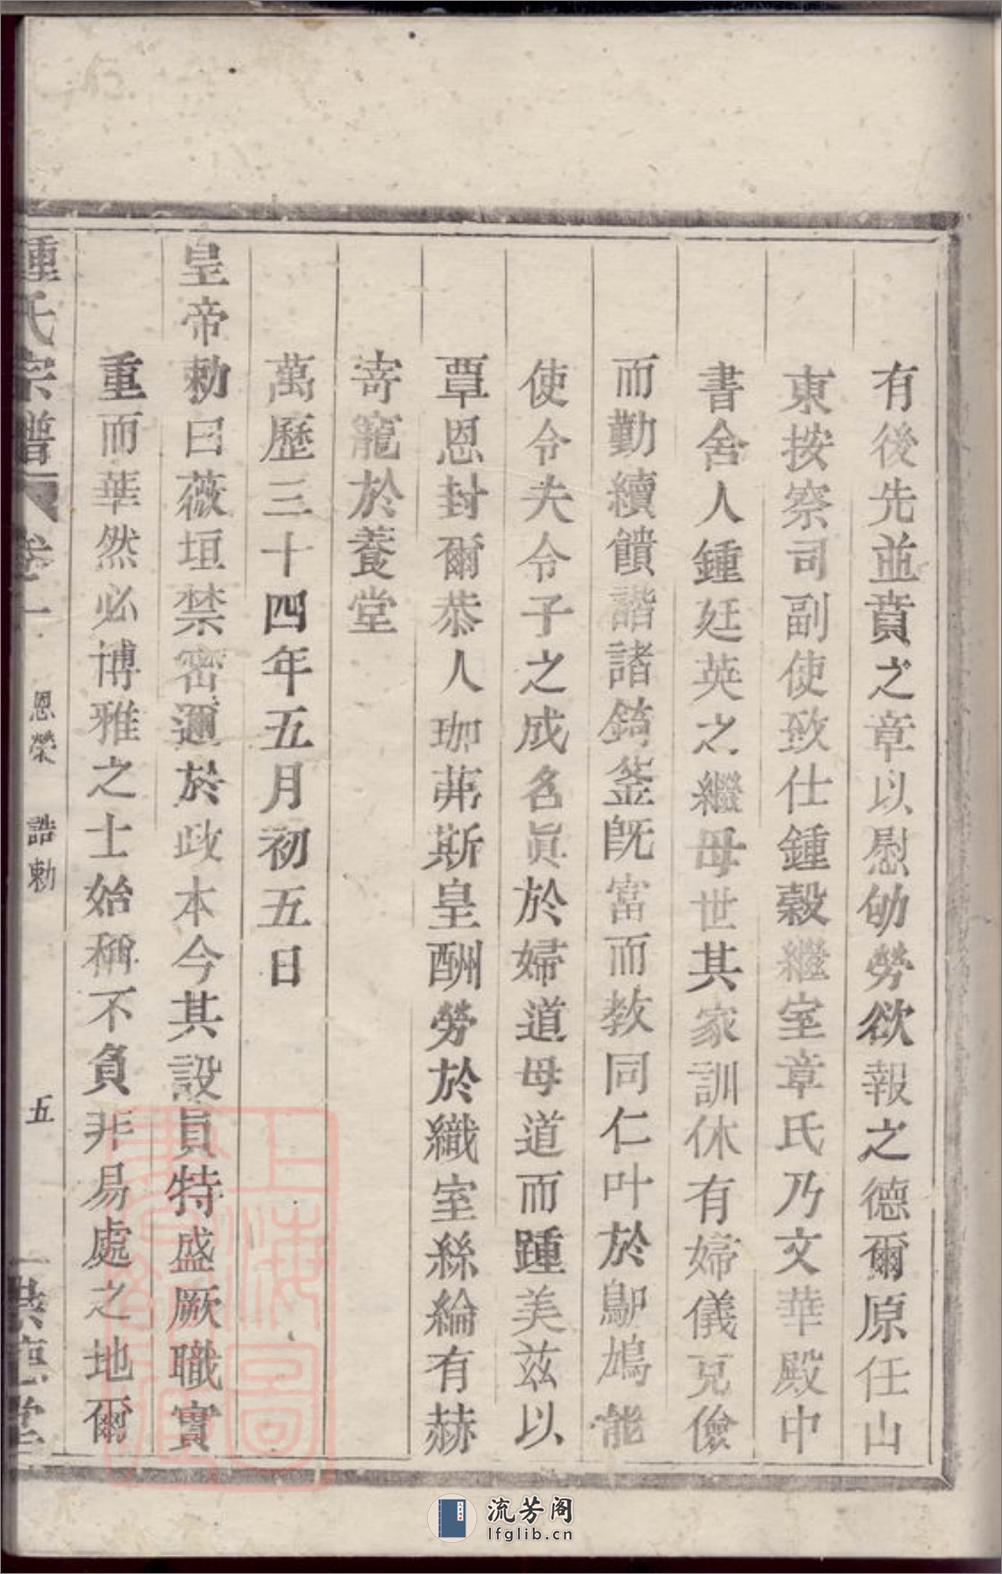 有後先並賁之章以慰劬勞欲報之德爾原任山
東按察司副使致仕鍾穀繼室章氏乃文華殿中
書舍人鍾廷英之繼母世其家訓休有婦儀克儉
而勤續饋諧諸錡釜旣富而教同仁叶於鳲鳩能
使令夫令子之成名眞於婦道母道而踵美茲以
覃恩封爾恭人珈茀斯皇酬勞於織室絲綸有赫
寄寵於養堂
萬歷三十四年五月初五日
皇帝勅曰薇垣禁密邇於政本今其設員特盛厥職實
重而華然必博雅之士始稱不負非易處之地爾
鍾氏宗譜 卷一 恩榮 誥勅 五
上海圖書館藏
流芳阁
lfglib.cn